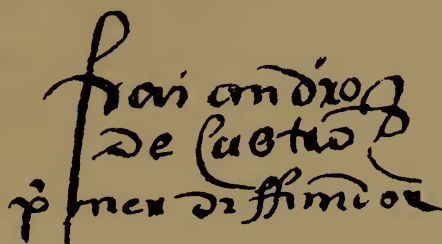 frai andros
de Castro
pº mer diffinidor